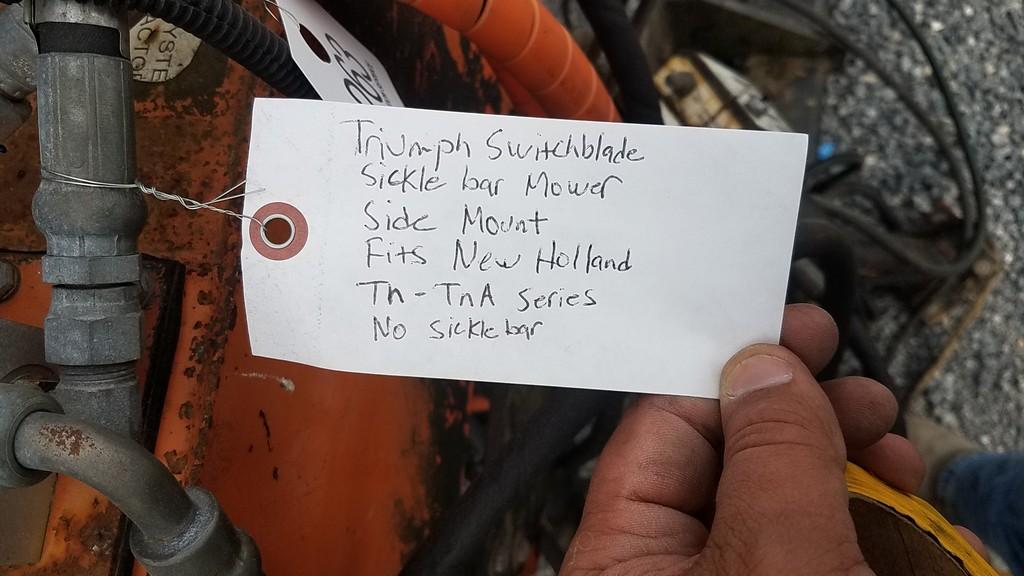 Triumph Switchblade
Sickle bar Mower
Side Mount
Fits New Holland
Tn-TnA Series
No Sicklebar